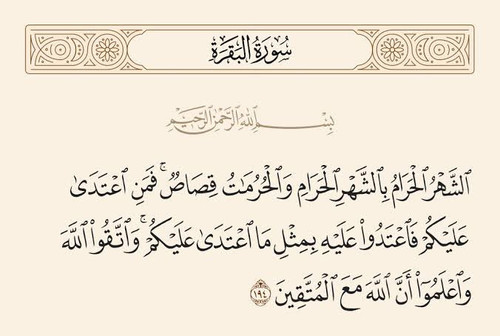 سُورَةُ البَقَرَةِ
بِسْمِ اللَّهِ الرَّحْمَٰنِ الرَّحِيمِ
الشَّهْرُ الْحَرَامُ بِالشَّهْرِ الْحَرَامِ وَالْحُرُمَاتُ قِصَاصٌ ۚ فَمَنِ اعْتَدَىٰ
عَلَيْكُمْ فَاعْتَدُوا عَلَيْهِ بِمِثْلِ مَا اعْتَدَىٰ عَلَيْكُمْ ۚ وَاتَّقُوا اللَّهَ
وَاعْلَمُوا أَنَّ اللَّهَ مَعَ الْمُتَّقِينَ ١٩٤